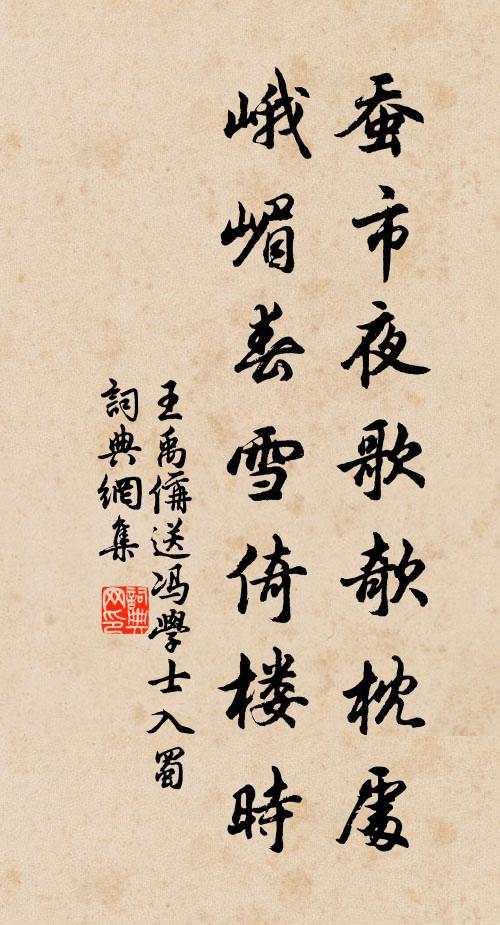 蚕市夜歌欹枕處
峨嵋春雪倚樓時
王禹偁送冯學士入蜀
詞典網集
詞典网印